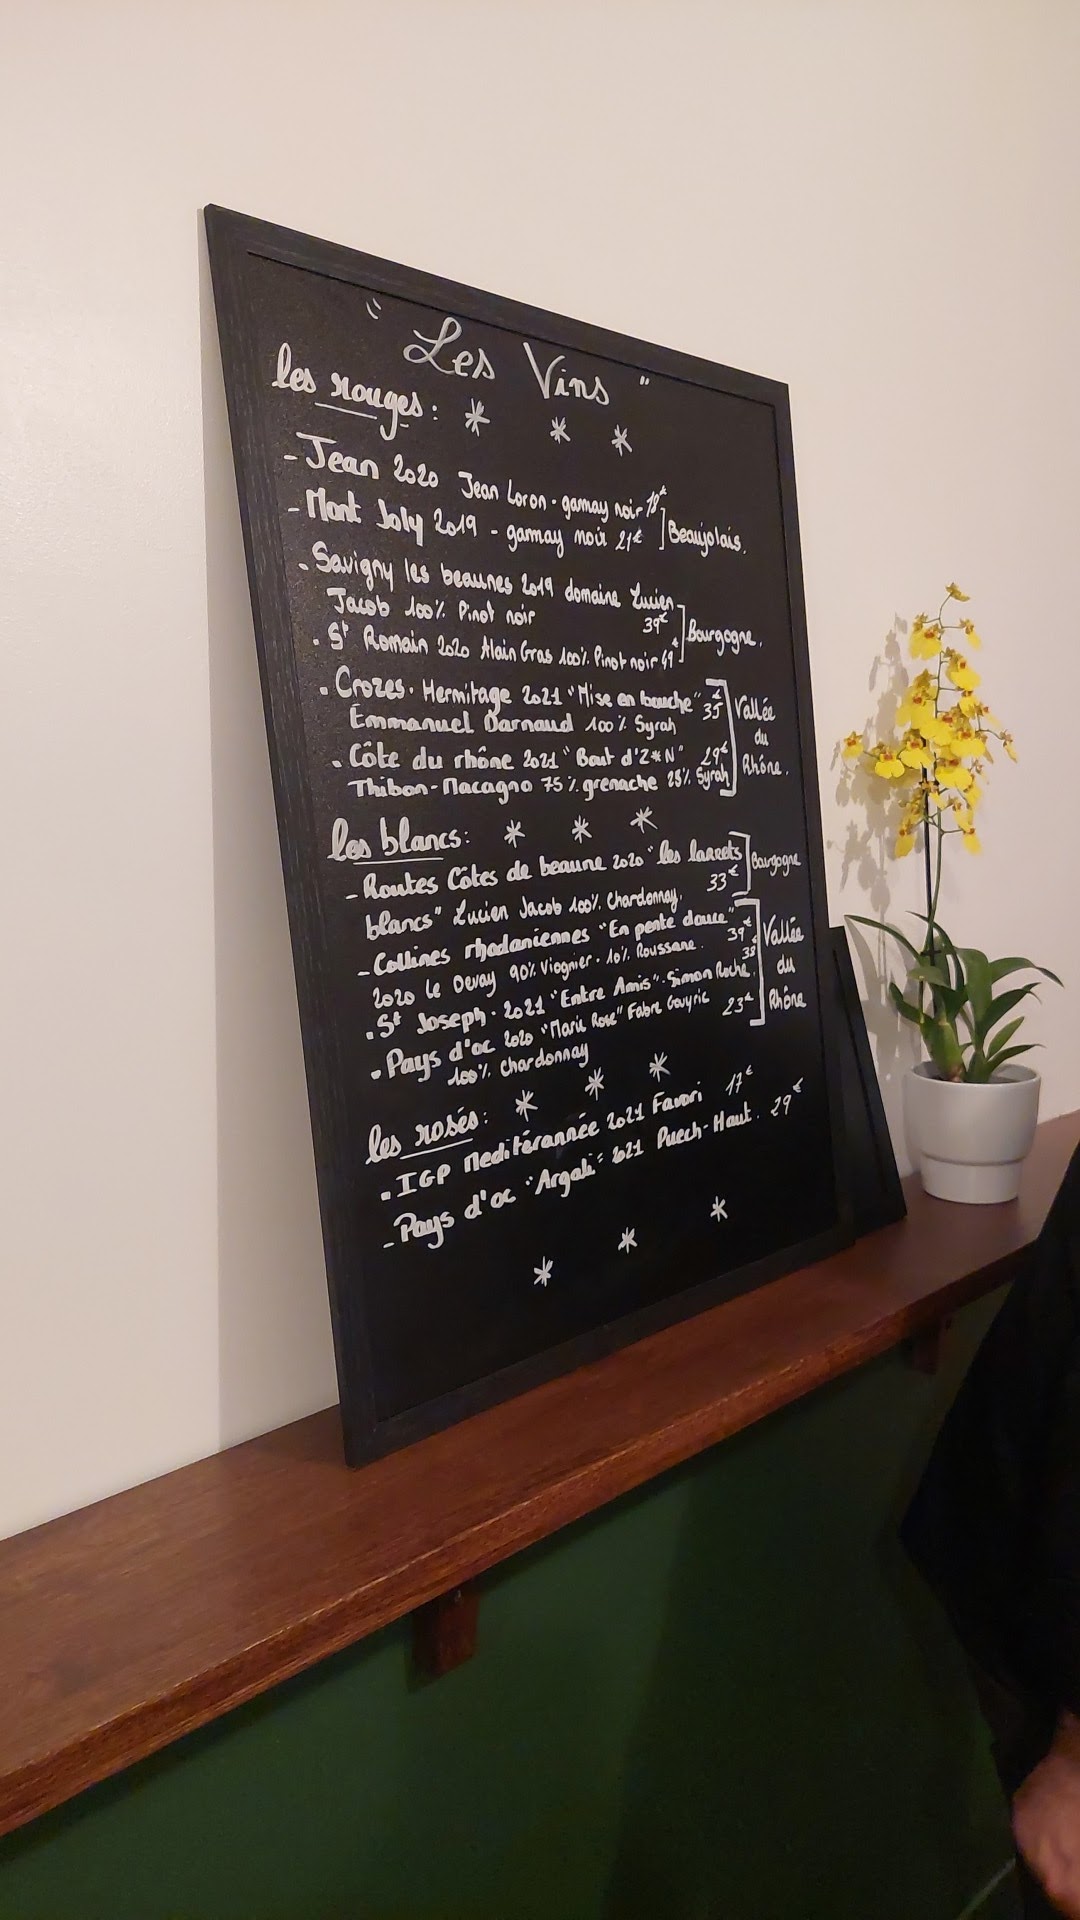 " Les Vins "
les rouges : * * *
- Jean 2020 Jean Loron - gamay noir 18€
- Mont Joly 2019 - gamay noir 21€ ] Beaujolais.
. Savigny les beaunes 2019 domaine Lucien
Jacob 100% Pinot noir 39€
. St Romain 2020 Alain Gras 100% Pinot noir 49€ ] Bourgogne.
. Crozes-Hermitage 2021 "Mise en bouche" 35€
Emmanuel Darnaud 100% Syrah
. Côte du rhône 2021 "Bout d'Z*N" 29€
Thibon-Macagno 75% grenache 25% Syrah
Vallée
du
Rhône.
les blancs : * * *
- Routes Côtes de beaune 2020 "les larrets
blancs" Lucien Jacob 100% Chardonnay. 33€ ] Bourgogne
- Collines rhodaniennes "En pente douce" 39€
2020 le Devay 90% Viognier - 10% Roussane.
. St Joseph - 2021 "Entre Amis" - Simon Roche. 38€
. Pays d'oc 2020 "Marie Rose" Fabre Gayric 23€
100% Chardonnay
Vallée
du
Rhône
les rosés : * * *
. IGP Meditérannée 2021 Favori 17€
- Pays d'oc "Argali" 2021 Puech-Haut. 29€
* * *